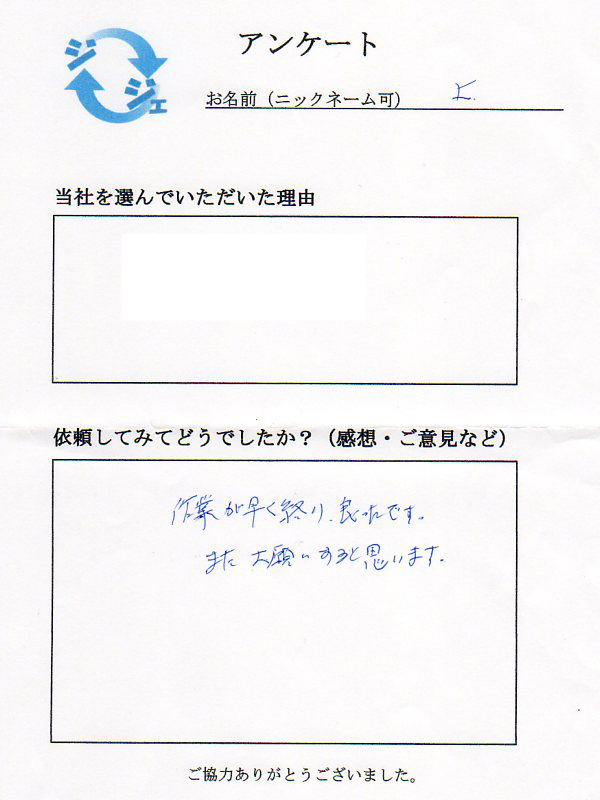 ジジェ
アンケート
お名前（ニックネーム可） Y.
当社を選んでいただいた理由
依頼してみてどうでしたか？（感想・ご意見など）
作業が早く終り、良ったです。
またお願いすると思います。
ご協力ありがとうございました。